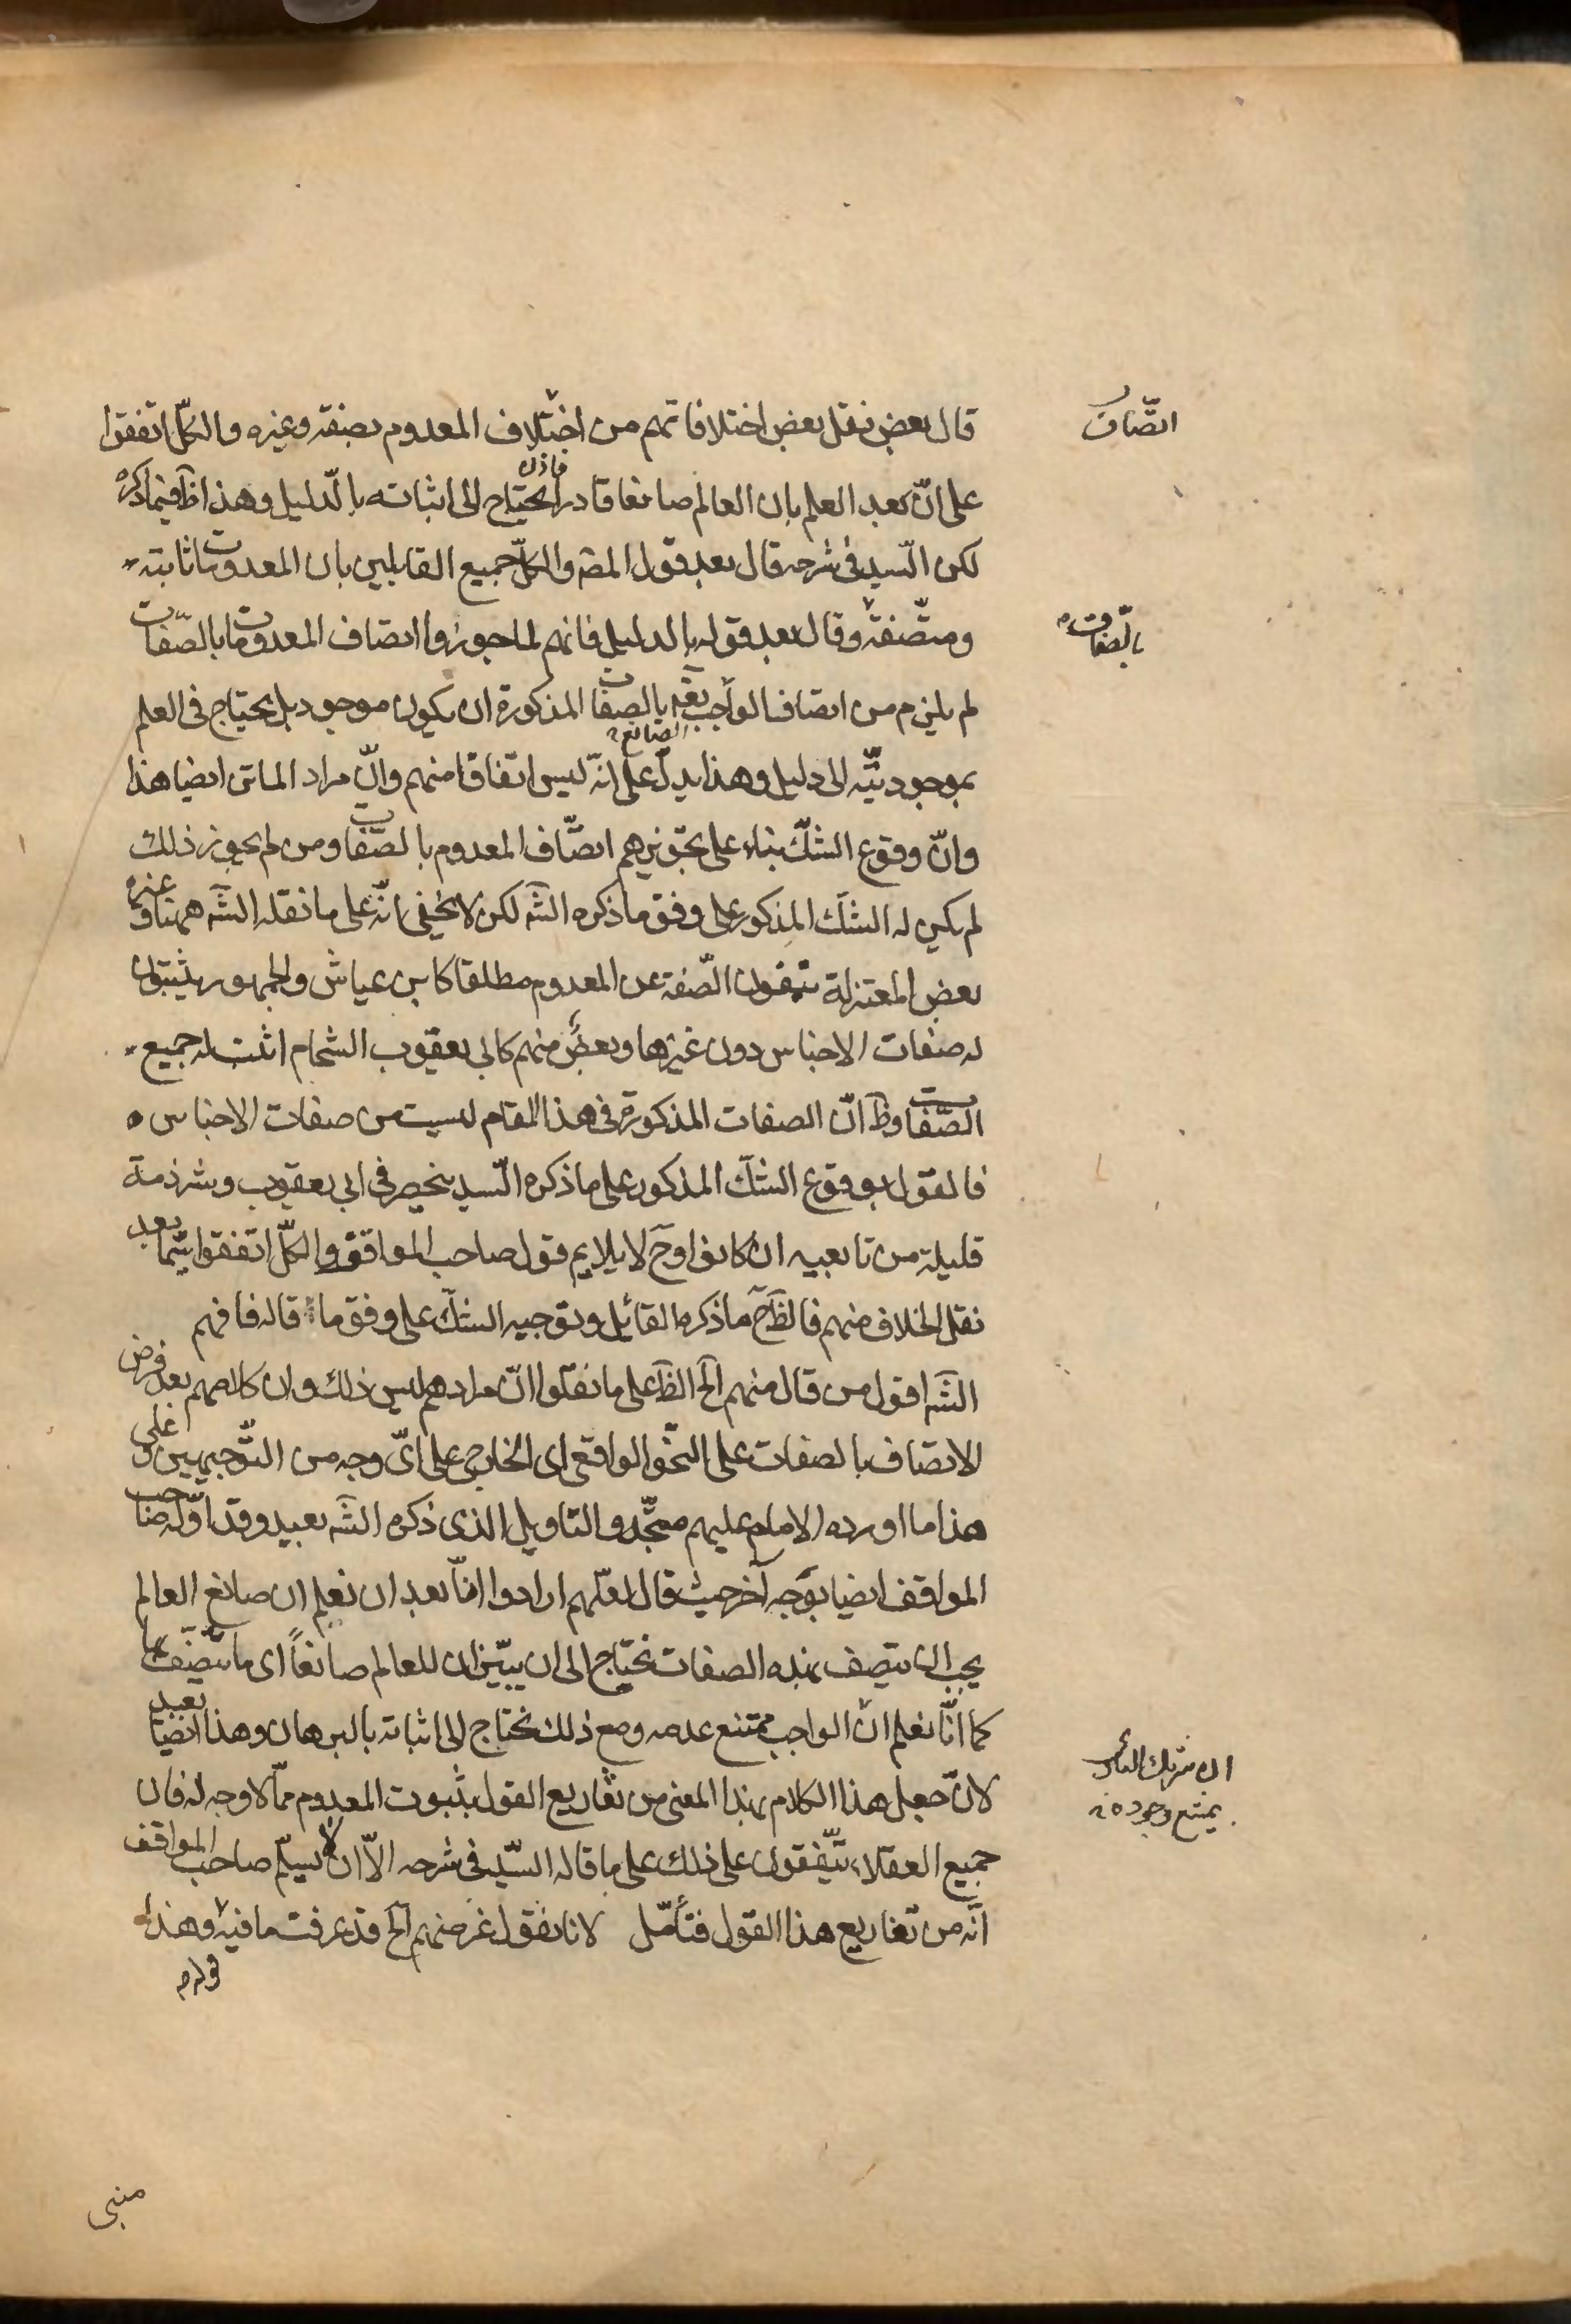 قال بعض نقل بعض اختلافاتهم من اختلاف المعدوم بصفة وغيره والكلّ اتفقوا
اتّصاف
على انّ بعد العلم بان العالم صانعا قادرا يحتاج الى اثباته بالدّليل وهذا ظآ فيما ذكره
لكن السّيد فى شرحه قال بعد قول المصَ والكلّ جميع القايلين بان المعدومات ثابتة
ومتّصفة وقال بعد قوله بالدليل فانهم لما جوزوا اتصاف المعدومات بالصّفات
بالصّفات
لم يلزم من اتصاف الواجب تعَه بالصفات المذكورة ان يكون موجود بل يحتاج فى العلم
الصانع
بموجوديّته الى دليل وهذا يدلّ على انّه ليس اتفاقا منهم وانّ مراد الماتن ايضا هذا
وانّ وقوع الشكّ بناء على تجويزهم اتصّاف المعدوم بالصّفات ومن لم يجوز ذلك
لم يكن له الشكّ المذكور على وفق ما ذكره الشَه لكن لا يخفى انّه على ما نقله الشَه ههنا وغيره
بعض المعتزلة ينفون الصّفة عن المعدوم مطلقا كابن عياش والجمهور يثبتون
له صفات الاجناس دون غيرها وبعض منهم كابى يعقوب الشحام اثبت له جميع
الصّفات وظَ انّ الصفات المذكورة فى هذا المقام ليست من صفات الاجناس
فالقول بوقوع الشكّ المذكور على ما ذكره السّيد ينحصر فى ابى يعقوب وشرذمة
قليلة من تابعيه ان كانوا وحَ لا يلايم قول صاحب المواقف والكلّ اتفقوا سيّما بعد
نقل الخلاف منهم فالظَ حَ ما ذكره القائل وتوجيه الشكّ على وفق ما قاله فافهم
الشَه اقول من قال منهم الَخ الظَ على ما نقلوا انّ مرادهم ليس ذلك وان كلامهم بعد فرض
الاتصاف بالصفات على النحّو الواقعى اى الخارجى على اىّ وجه من التّوجيهين وعلى
هذا ما اورده الامام عليهم متجّه والتاويل الذى ذكره الشَه بعيد وقد اوّله صاحب
المواقف ايضا بوجه آخر حيث قال لعلّهم ارادوا انّا بعد ان نعلم ان صانع العالم
يجب ان يتصف بهذه الصفات نحتاج الى ان يبيّن ان للعالم صانعاً اى ما يتّصف بها
كما انّا نعلم ان الواجب يمتنع عدمه ومع ذلك نحتاج الى اثباته بالبرهان وهذا ايضا بعيد
ان شريك البارى
يمتنع وجوده
لانّ جعل هذا الكلام بهذا المعنى من تفاريع القول بثبوت المعدوم ممّا لا وجه له فان
جميع العقلاء يتّفقون على ذلك على ما قاله السّيد فى شرحه الاّ ان لا يسلّم صاحب المواقف
انّه من تفاريع هذا القول فتأمّل لانا نقول غرضهم الَخ قد عرفت ما فيه وهذا
قوله
مبنى